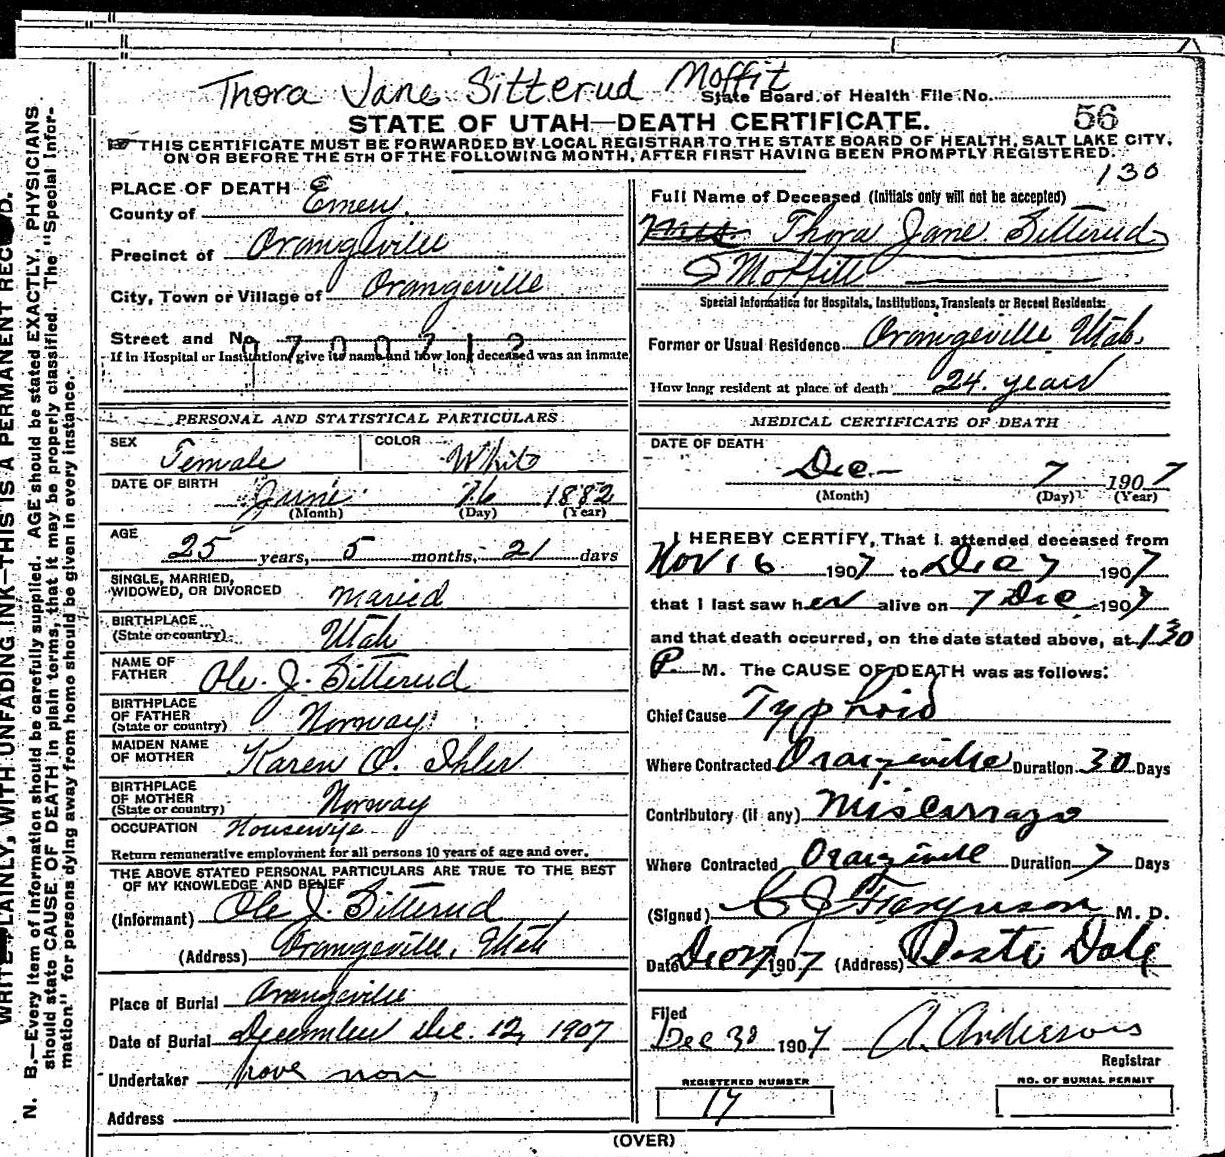 Thora Jane Sitterud Moffit
State Board of Health File No.
56
STATE OF UTAH—DEATH CERTIFICATE.
THIS CERTIFICATE MUST BE FORWARDED BY LOCAL REGISTRAR TO THE STATE BOARD OF HEALTH, SALT LAKE CITY,
ON OR BEFORE THE 5TH OF THE FOLLOWING MONTH, AFTER FIRST HAVING BEEN PROMPTLY REGISTERED.
130
PLACE OF DEATH
County of Emery.
Precinct of Orangeville
City, Town or Village of Orangeville
Street and No.
If in Hospital or Institution, give its name and how long deceased was an inmate
PERSONAL AND STATISTICAL PARTICULARS
SEX Female COLOR White
DATE OF BIRTH June 16 1882
(Month) (Day) (Year)
AGE
25 years, 5 months, 21 days
SINGLE, MARRIED,
WIDOWED, OR DIVORCED Maried
BIRTHPLACE
(State or country) Utah
NAME OF
FATHER Ole. J. Sitterud
BIRTHPLACE
OF FATHER
(State or country) Norway
MAIDEN NAME
OF MOTHER Karen O. Ihler
BIRTHPLACE
OF MOTHER
(State or country) Norway
OCCUPATION Housewife
Return remunerative employment for all persons 10 years of age and over.
THE ABOVE STATED PERSONAL PARTICULARS ARE TRUE TO THE BEST
OF MY KNOWLEDGE AND BELIEF
(Informant) Ole J. Sitterud
(Address) Orangeville, Utah
Place of Burial Orangeville
Date of Burial December Dec. 12, 1907
Undertaker have non
Address
Full Name of Deceased (Initials only will not be accepted)
Mrs. Thora Jane Sitterud
Moffitt
Special Information for Hospitals, Institutions, Transients or Recent Residents:
Former or Usual Residence Orangeville Utah.
How long resident at place of death 24. years
MEDICAL CERTIFICATE OF DEATH
DATE OF DEATH
Dec 7 1907
(Month) (Day) (Year)
I HEREBY CERTIFY, That I attended deceased from
Nov 16 1907 to Dec 7 1907
that I last saw her alive on 7 Dec 1907
and that death occurred, on the date stated above, at 130
P M. The CAUSE OF DEATH was as follows:
Chief Cause Typhoid
Where Contracted Orangeville Duration 30 Days
Contributory (if any) Miscarrage
Where Contracted Orangeville Duration 7 Days
(Signed) C J Ferguson M. D.
Date 1907 (Address) Dale
Filed
Dec 30 1907 A. Anderson
Registrar
REGISTERED NUMBER
17
NO. OF BURIAL PERMIT
(OVER)
WRITE PLAINLY, WITH UNFADING INK—THIS IS A PERMANENT RECORD.
N. B.—Every item of information should be carefully supplied. AGE should be stated EXACTLY. PHYSICIANS
should state CAUSE OF DEATH in plain terms, that it may be properly classified. The "Special Infor-
mation" for persons dying away from home should be given in every instance.